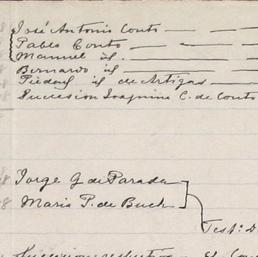 José Antonio Couto
Pablo Couto
Manuel id.
Bernardo id
Piedad id de Artigas
Sucesion Joaquina C. de Couto
Jorge G de Parada
Maria P. de Buch
Test: D